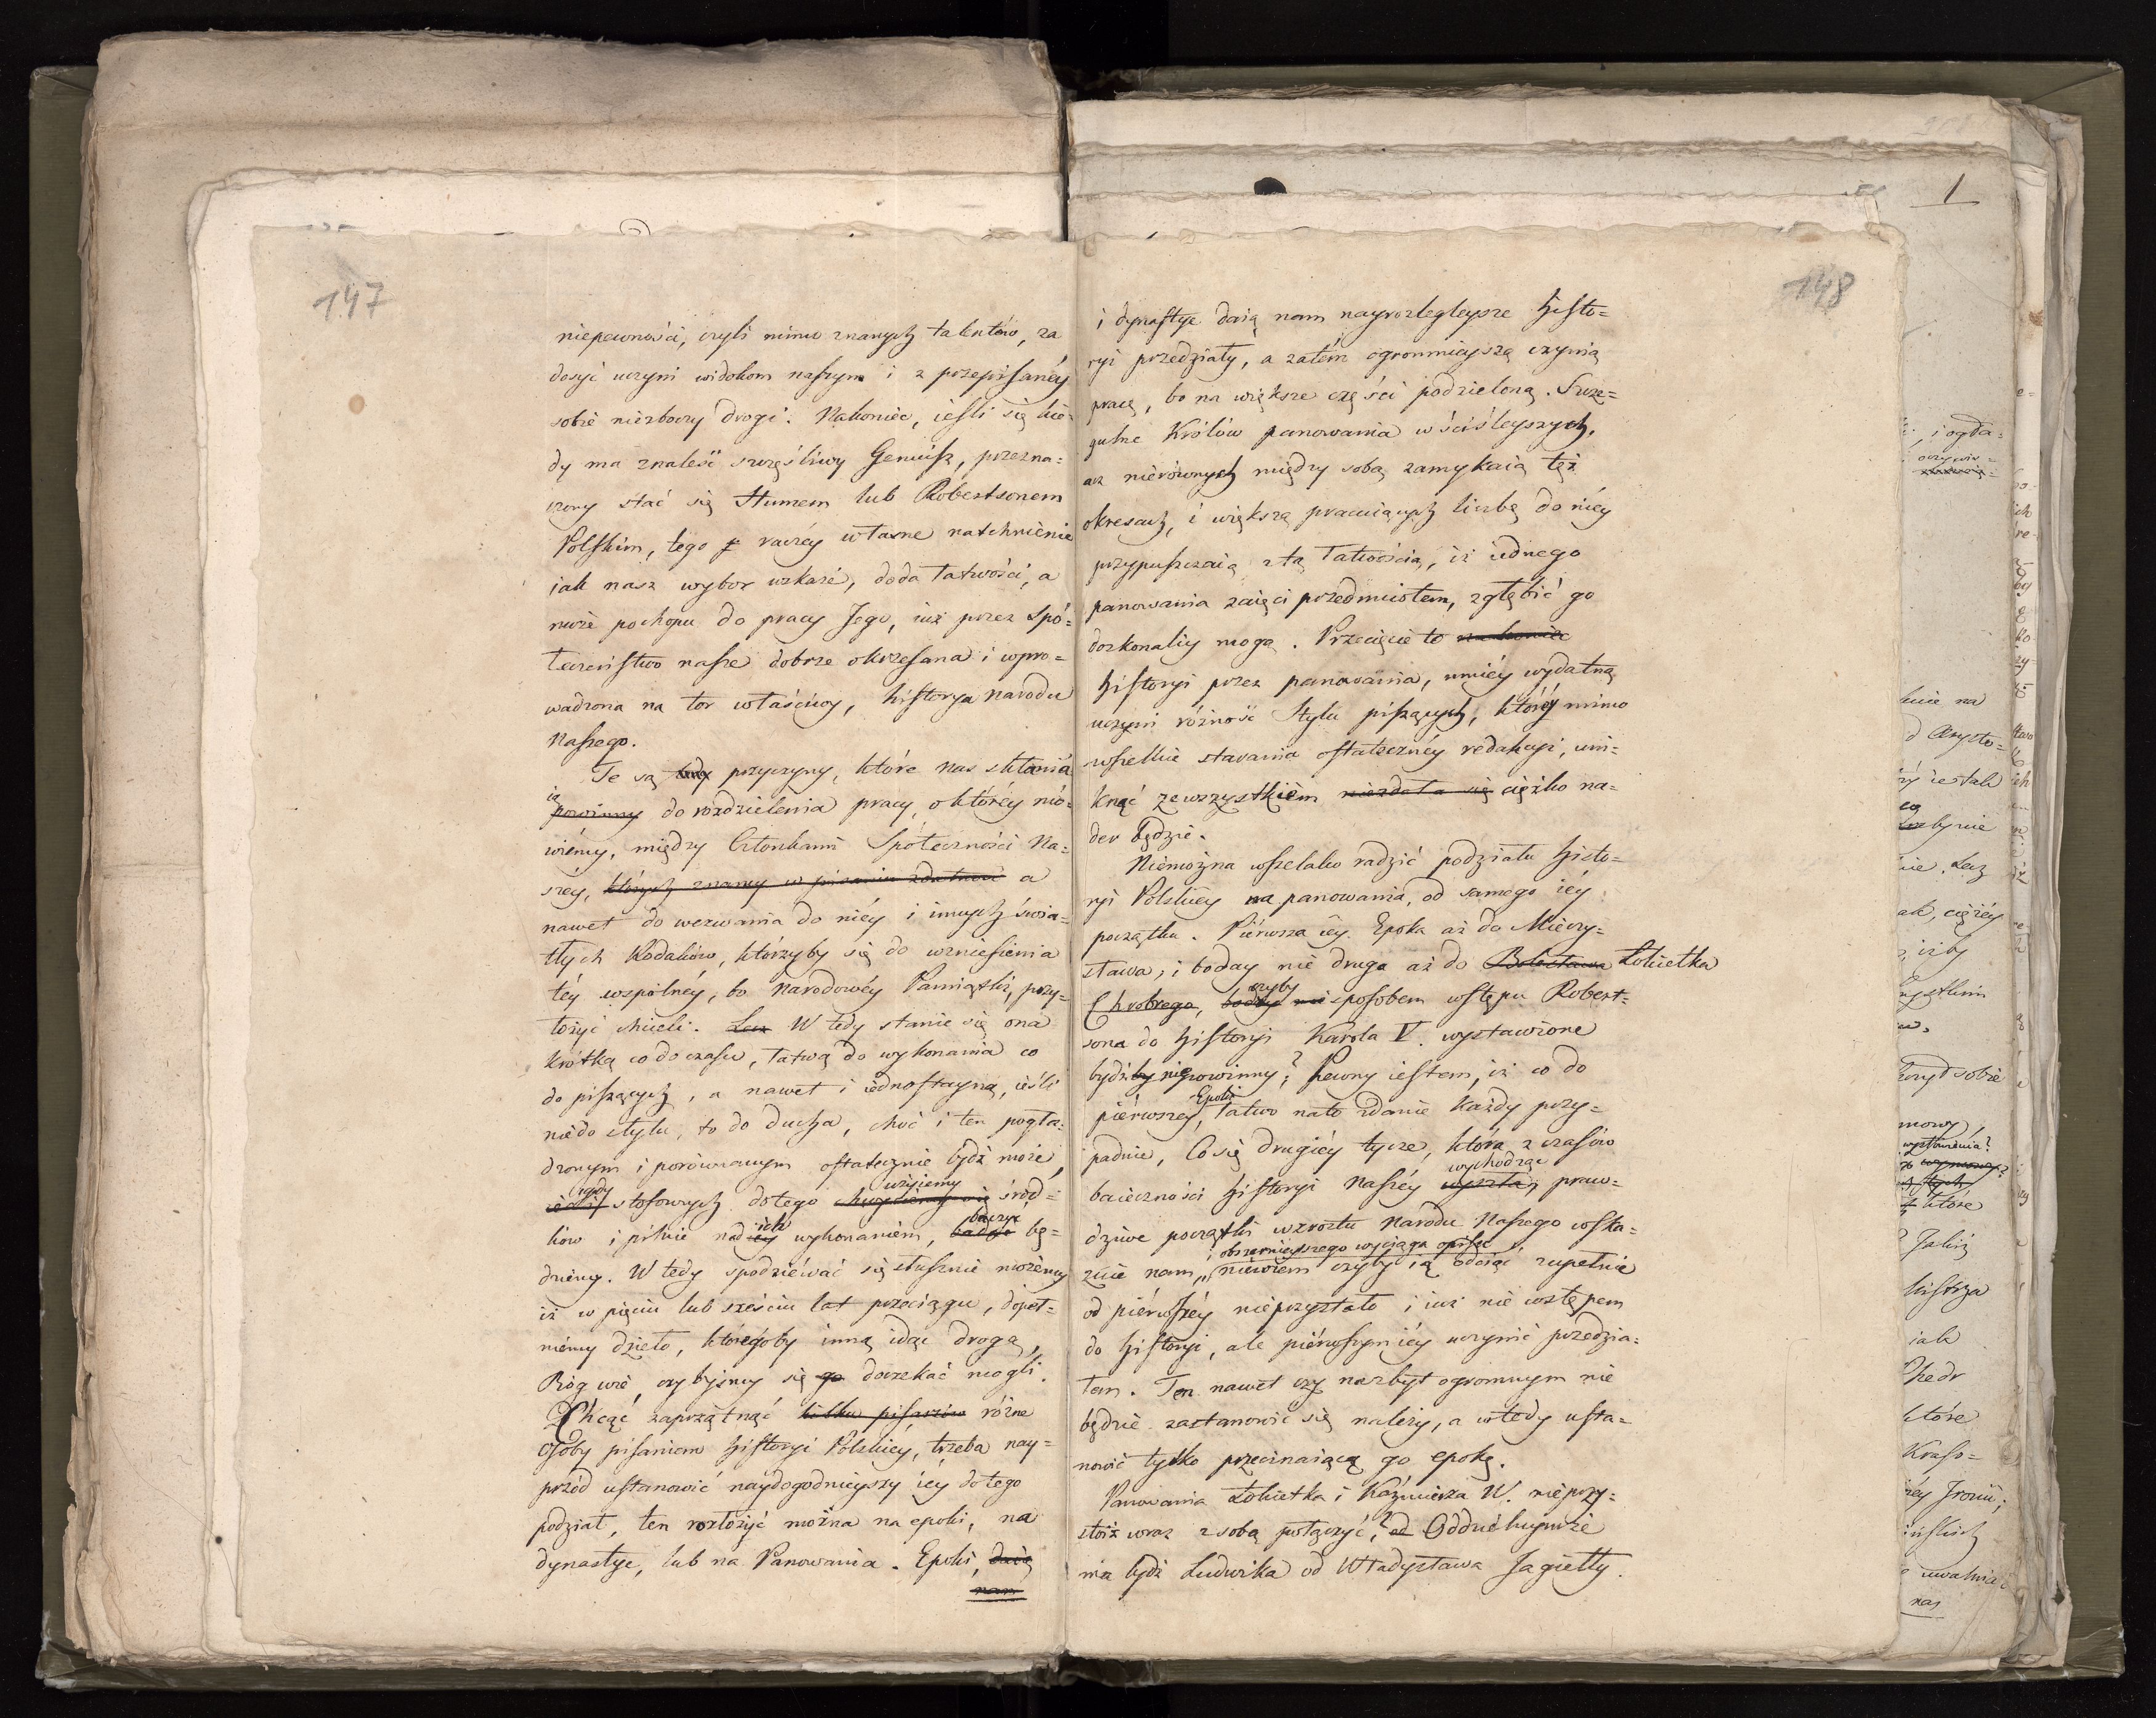 147
niepewności, czyli mimo znanych talentów, za
dosyć uczyni widokom naszym i z przepisanéy
sobie niezboczy drogi. Nakoniec, iesli się kie-
dy ma znaleść szczęśliwy Geniusz, przezna=
czony stać się Humem lub Robertsonem
Polskim, tego raczéy własne natchnienie
jak nasz wybor wskaże, doda łatwości, a
może pochopu do pracy Jego, iuż przez Spó=
łeczeństwo nasze dobrze okrzesana i wpro=
wadzona na tor właściwy, historya narodu
Naszego.
Te są przyczyny, które nas skłania
ią
powinny do rozdzielenia pracy, o któréy mó=
wiémy, między Członkami Społeczności Na=
szey, których znamy w pisaniu zdatność a
nawet do wezwania do niéy i innych świa=
tłych Rodaków, którzyby się do wzniesienia
téy wspólnéy, bo Narodowéy Pamiątki, przy=
łożyć chcieli. Lecz W tedy stanie się ona
krótką co do czasu, łatwą do wykonania co
do piszących, a nawet i iednostayną, ieśli
niedo stylu, to do ducha, choć i ten pogła=
dzonym i porównanym ostatecznie bydź może,
gdy użyiemy
stosownych dotego śród=
ich baczyć
ków i pilnie nad iéy wykonaniem, bę=
dziemy. W tedy spodziéwać się słusznie możemy
iż w pięciu lub sześciu lat przeciągu, dopeł=
niémy dzieło, któregoby inną idąc drogą,
Bóg wié, czybyśmy się go doczekać mogli.
Chcąc zaprzątnąć kilku pisarzów różne
osoby pisaniem historyi Polskiéy, trzeba nay=
przód ustanowić naydogodnieyszy iéy do tego
podział, ten rozłożyć można na epoki, na
dynastye, lub na Panowania. Epoki, daią
nam
148
i dynastye daią nam nayrozlegleysze histo=
ryi przedziały, a zatém ogromnieyszą czynią
pracę, bo na większe części podzieloną. Szcze=
gulne Królów panowania w ściśleyszych,
acz nierównych między sobą zamykaią też
okresach, i większą pracuiących liczbę do niéy
przypuszczaią z tą łatwością, iż iednego
panowania zaięci przedmiotem, zgłębić go
doskonaléy mogą. Przecięcie to nakoniec
historyi przez panowania, mniéy wydatną
uczyni różność Stylu piszących, któréy mimo
wszelkie starania ostatecznéy redakcyi, uni=
knąć ze wszystkiém niezdoła się ciężko na=
der będzie.
Niemożna wszelako radzić podziału histo=
ryi Polskiéy na panowania, od samego iéy
początku. Piérwsza iéy Epoka aż do Mieczy=
sława, i boday nie druga aż do Bolesława Łokietka
czyby
Chrobrego, sposobem wstępu Robert=
sona do historyi Karola V. wystawione
bydź niepowinny? Pewny iestem, iż co do
Epoki
piérwszey, łatwo nato zdanie każdy przy=
padnie, Co się drugiéy tycze, która z czasów
wychodząc
baieczności historyi Naszéy praw=
dziwe początki wzrostu Narodu Naszego wska=
i obszernieyszego wyciąga opisu
zuie nam, niewiem czyby ią odciąć zupełnie
od piérwszéy nieprzystało i iuż nie wstępem
do historyi, ale piérwszym iéy uczynić przedzia=
łem. Ten nawet czy nazbyt ogromnym nie
będzie zastanowić się należy, a wtedy usta=
nowić tylko przecinaiącą go epokę.
Panowania Łokietka i Kaźmierza W. nieprzy=
stoiż wraz z sobą połączyć?
ma bydź Ludwika od Władysława Jagiełły.
1